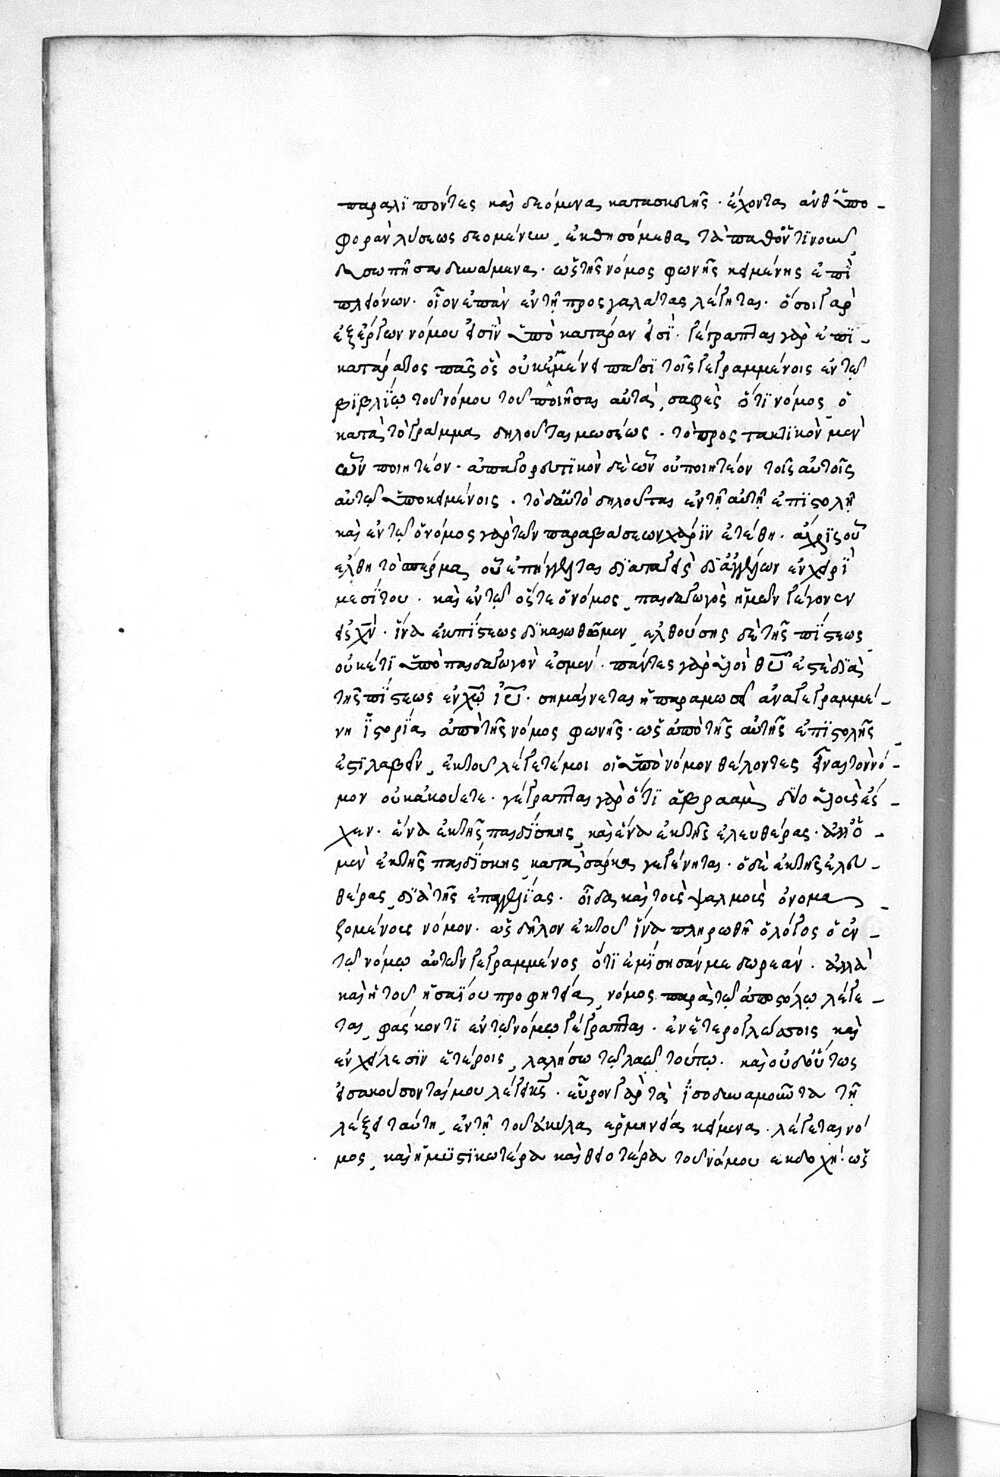 παραλιπόντες καὶ δεόμενα κατασκευῆς · ἔχοντα ἀνθυπο-
φορὰν λύσεως δεομένων, ἐκθησόμεθα τὰ παθόν τινουν
δυσωπῆσαι δυνάμενα · ὡς τῆς νόμος φωνῆς κειμένης ἐπὶ
πλειόνων · οἷον ἐπὰν ἐν τῇ πρὸς γαλάτας λέγηται · ὅσοι γὰρ
ἐξ ἔργων νόμου εἰσὶν ὑπὸ κατάραν εἰσὶ · γέγραπται γὰρ ἐπι-
κατάρατος πᾶς ὃς οὐκ ἐμμένει πᾶσι τοῖς γεγραμμένοις ἐν τῷ
βιβλίῳ τοῦ νόμου τοῦ ποιῆσαι αὐτὰ, σαφὲς ὅτι νόμος ὁ
κατὰ τὸ γράμμα δηλοῦται μωσέως · τὸ προστακτικὸν μὲν
ὧν ποιητέον · ἀπαγορευτικὸν δὲ ὧν οὐ ποιητέον τοῖς αὐτοῖς
αὐτῷ ὑποκειμένοις · τὸ δ' αὐτὸ δηλοῦται ἐν τῇ αὐτῇ ἐπιστολῇ
καὶ ἐν τῷ ὁ νόμος γὰρ τῶν παραβάσεων χάριν ἐτέθη · ἄχρις οὗ
ἔλθῃ τὸ σπέρμα ᾧ ἐπήγγελται διαταγεὶς δι' ἀγγέλων ἐν χειρὶ
μεσίτου · καὶ ἐν τῷ ὥστε ὁ νόμος, παιδαγωγὸς ἡμῶν γέγονεν
εἰς χν · ἵνα ἐκ πίστεως δικαιωθῶμεν, ἐλθούσης δὲ τῆς πίστεως
οὐκέτι ὑπὸ παιδαγωγὸν ἐσμέν · πάντες γὰρ υἱοὶ θυ ἐστὲ διὰ
τῆς πίστεως ἐν χω ιυ · σημαίνεται ἡ παρὰ μωσεῖ ἀναγεγραμμέ-
νη ἱστορία ἀπὸ τῆς νόμος φωνῆς · ὡς ἀπὸ τῆς αὐτῆς ἐπιστολῆς
ἔστι λαβεῖν, ἐκ τοῦ λέγετέ μοι οἱ ὑπὸ νόμον θέλοντες εἶναι τὸν νό-
μον οὐκ ἀκούετε · γέγραπται γὰρ ὅτι ἀβραὰμ δύο υἱοὺς ἔσ-
χεν · ἕνα ἐκ τῆς παιδίσκης, καὶ ἕνα ἐκ τῆς ἐλευθέρας · ἀλλ' ὁ
μὲν ἐκ τῆς παιδίσκης κατὰ σάρκα γεγένηται · ὁ δὲ ἐκ τῆς ἐλευ-
θέρας, διὰ τῆς ἐπαγγελίας · οἶδα καὶ τοὺς ψαλμοὺς ὀνομα-
ζομένους νόμον · ὡς δῆλον ἐκ τοῦ ἵνα πληρωθῇ ὁ λόγος ὁ ἐν
τῷ νόμῳ αὐτῶν γεγραμμένος ὅτι ἐμίσησάν με δωρεάν · ἀλλὰ
καὶ ἡ τοῦ ἡσαΐου προφητεία, νόμος παρὰ τῷ ἀποστόλῳ λέγε-
ται, φάσκοντι ἐν τῷ νόμῳ γέγραπται · ἐν ἑτερογλώσσοις καὶ
ἐν χείλεσιν ἑτέροις, λαλήσω τῷ λαῷ τούτῳ · καὶ οὐδ' οὕτως
εἰσακούσονταί μου λέγει κς · εὗρον γὰρ τὰ ἰσοδυναμοῦντα τῇ
λέξει ταύτῃ ἐν τῇ τοῦ ἀκύλα ἑρμηνείᾳ κείμενα · λέγεται νό
μος, καὶ ἡ μυστικωτέρα καὶ θειοτέρα τοῦ νόμου ἐκδοχή · ὡς